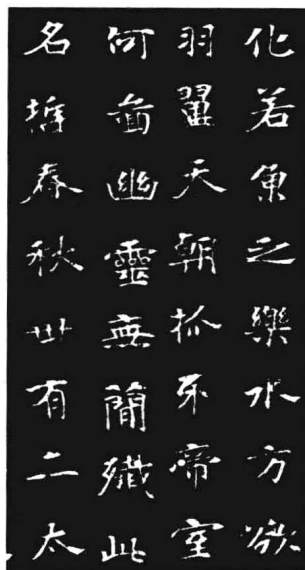 化若魚之樂水方欲
羽翼天朝抓牙帝室
何啚幽靈無簡殲此
名哲春秋卅有二太